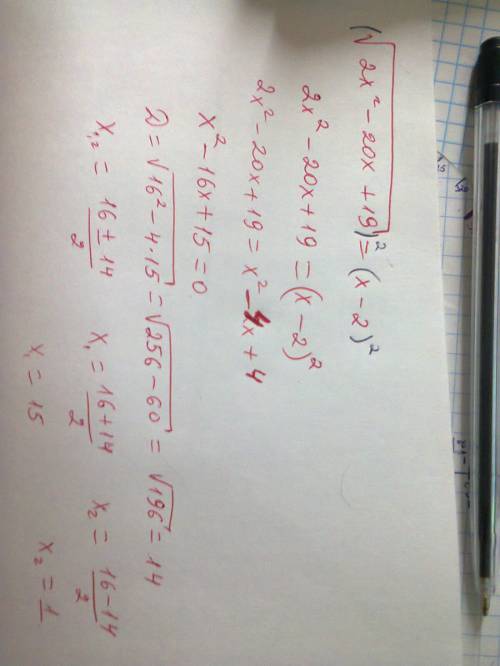 (√2x² - 20x + 19)² = (x - 2)²
2x² - 20x + 19 = (x - 2)²
2x² - 20x + 19 = x² - 4x + 4
x² - 16x + 15 = 0
D = √16² - 4·15 = √256 - 60 = √196 = 14
x₁,₂ = (16 ± 14)/2 x₁ = (16 + 14)/2 x₂ = (16 - 14)/2
x₁ = 15 x₂ = 1